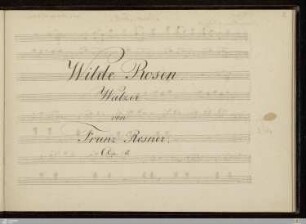 Wilde Rosen
Walzer
von
Franz Rosner